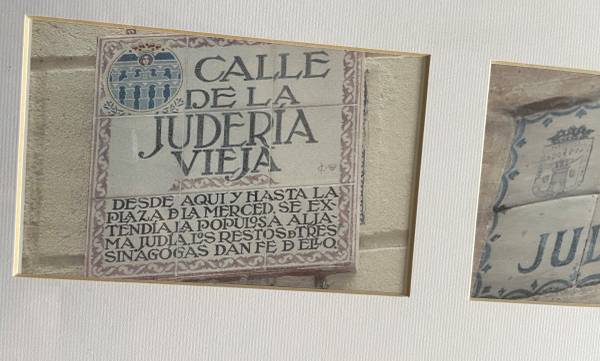 CALLE
DE LA
JUDERIA
VIEJA
DESDE AQUI Y HASTA LA
PLAZA D LA MERCED, SE EX-
TENDIA LA POPULOSA ALJA-
MA JUDIA. LOS RESTOS D TRES
SINAGOGAS DAN FE D ELLO.
JUD